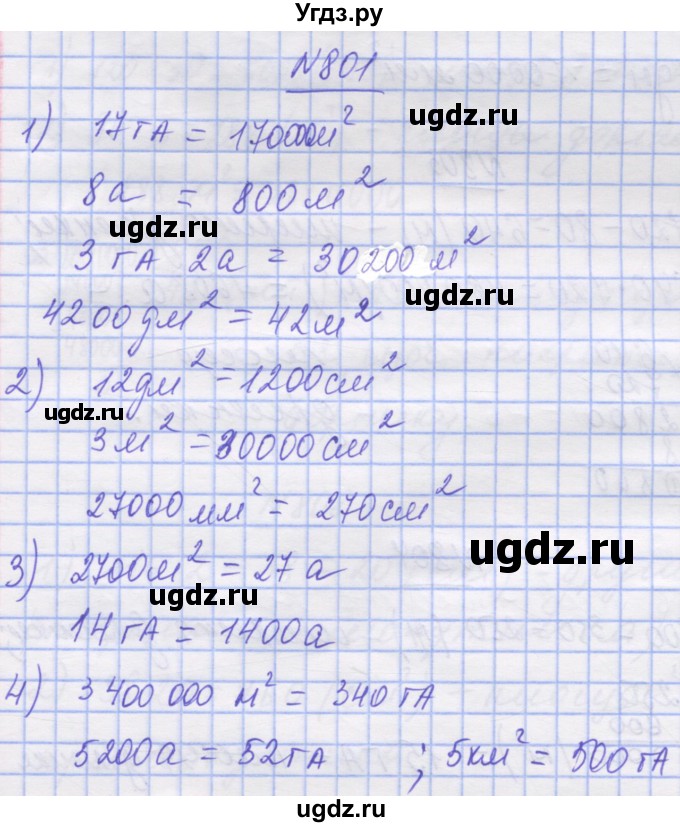 Угдз.ру
N801
1) 17 га = 170000м²
ugdz.ru
8а = 800 м²
ugdz.ru
3 га 2а = 30200 м²
ugdz.ru
4200 дм² = 42 м²
2) 12дм² = 1200см²
ugdz.ru
3 м² = 30000 см²
27000 мм² = 270 см²
ugdz.ru
3) 2700м² = 27 а
ugdz.ru
14 га = 1400а
4) 3 400 000 м² = 340 га
5200а = 52га ; 5км² = 500 га
ugdz.ru